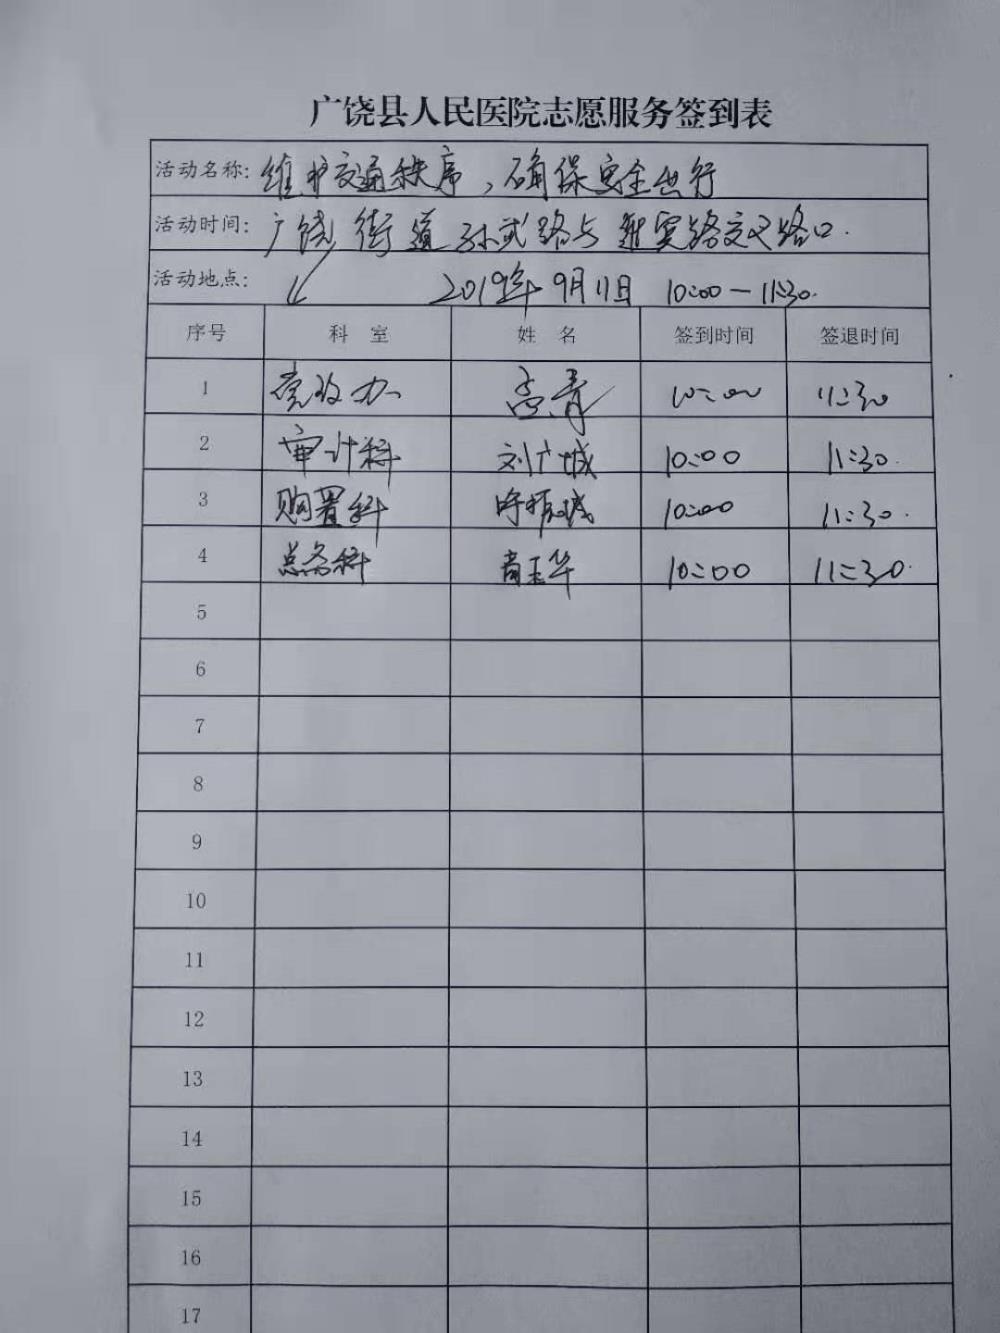 广饶县人民医院志愿服务签到表
活动名称: 维护交通秩序，确保安全出行
活动时间: 广饶街道孙武路与 路交叉路口.
活动地点: 2019年9月11日 10:00—11:30.
序号 科室 姓名 签到时间 签退时间
1 党政办 孟青 10:00 11:30
2 审计科 刘广城 10:00 11:30.
3 购置科 10:00 11:30.
4 总务科 10:00 11:30.
5
6
7
8
9
10
11
12
13
14
15
16
17